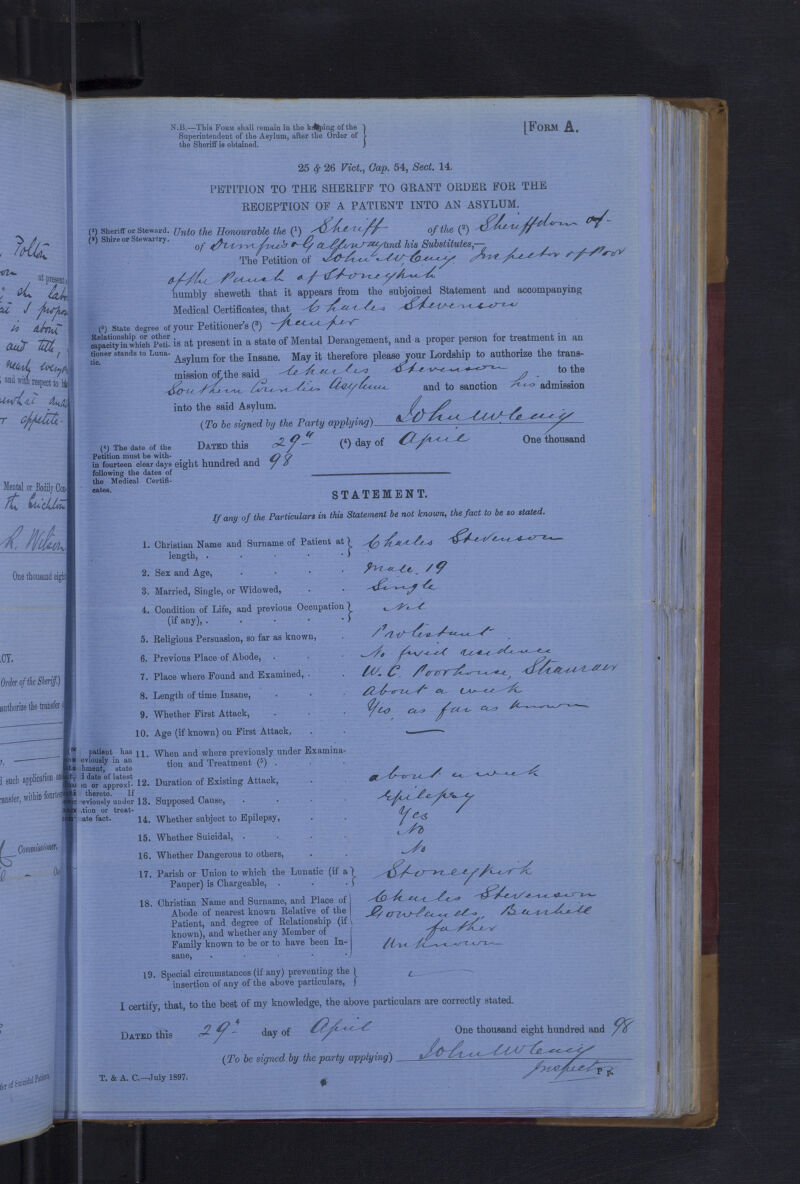 N.B.—This Form shall remain in the keeping of the
Superintendent of the Asylum, after the Order of
the Sheriff is obtained.
[FORM A.
25 & 26 Vict., Cap. 54, Sect. 14.
PETITION TO THE SHERIFF TO GRANT ORDER FOR THE
RECEPTION OF A PATIENT INTO AN ASYLUM.
(¹) Sheriff or Steward.
(²) Shire or Stewartry.
Unto the Honourable the (¹) Sheriff of the (²) Sheriffdom of
of Dumfries & Galloway and his Substitutes,—
The Petition of John McCaig Inspector of Poor
of the Parish of Stoneykirk
humbly sheweth that it appears from the subjoined Statement and accompanying
Medical Certificates, that Charles Stevenson
(³) State degree of
Relationship or other
capacity in which Peti-
tioner stands to Luna-
tic.
your Petitioner's (³) pauper
is at present in a state of Mental Derangement, and a proper person for treatment in an
Asylum for the Insane. May it therefore please your Lordship to authorize the trans-
mission of the said Charles Stevenson to the
Southern Counties Asylum and to sanction his admission
into the said Asylum.
(To be signed by the Party applying) John McCaig
(⁴) The date of the
Petition must be with-
in fourteen clear days
following the dates of
the Medical Certifi-
cates.
DATED this 29" (⁴) day of April One thousand
eight hundred and 98
STATEMENT.
If any of the Particulars in this Statement be not known, the fact to be so stated.
1. Christian Name and Surname of Patient at
length, . Charles Stevenson
2. Sex and Age, Male, 19
3. Married, Single, or Widowed, Single
4. Condition of Life, and previous Occupation
(if any), . Nil
5. Religious Persuasion, so far as known, Protestant
6. Previous Place of Abode, . No fixed residence
7. Place where Found and Examined, . W. C. Poorhouse, Stranraer
8. Length of time Insane, About a week
9. Whether First Attack, Yes, as far as known
10. Age (if known) on First Attack, —
patient has
eviously in an
state
date of latest
or approxi-
thereto. If
previously under
or treat-
ate fact.
11. When and where previously under Examina-
tion and Treatment (⁵) .
12. Duration of Existing Attack, about a week
13. Supposed Cause, Epilepsy
14. Whether subject to Epilepsy, Yes
15. Whether Suicidal, . No
16. Whether Dangerous to others, No
17. Parish or Union to which the Lunatic (if a
Pauper) is Chargeable, . Stoneykirk
18. Christian Name and Surname, and Place of
Abode of nearest known Relative of the
Patient, and degree of Relationship (if
known), and whether any Member of
Family known to be or to have been In-
sane, .
Charles Stevenson
Gowlands,
father
Unknown
19. Special circumstances (if any) preventing the
insertion of any of the above particulars,
I certify, that, to the best of my knowledge, the above particulars are correctly stated.
DATED this 29" day of April One thousand eight hundred and 98
(To be signed by the party applying) John McCaig
Inspector
T. & A. C.—July 1897.
Polton
at present
is about
nearly
and with respect to
appetite
Mental or Bodily Con
the Crichton
R. Wilson
One thousand eight
CY.
Order of the Sheriff.)
authorize the transfer
such application
transfer, within fourteen
Commissioner.